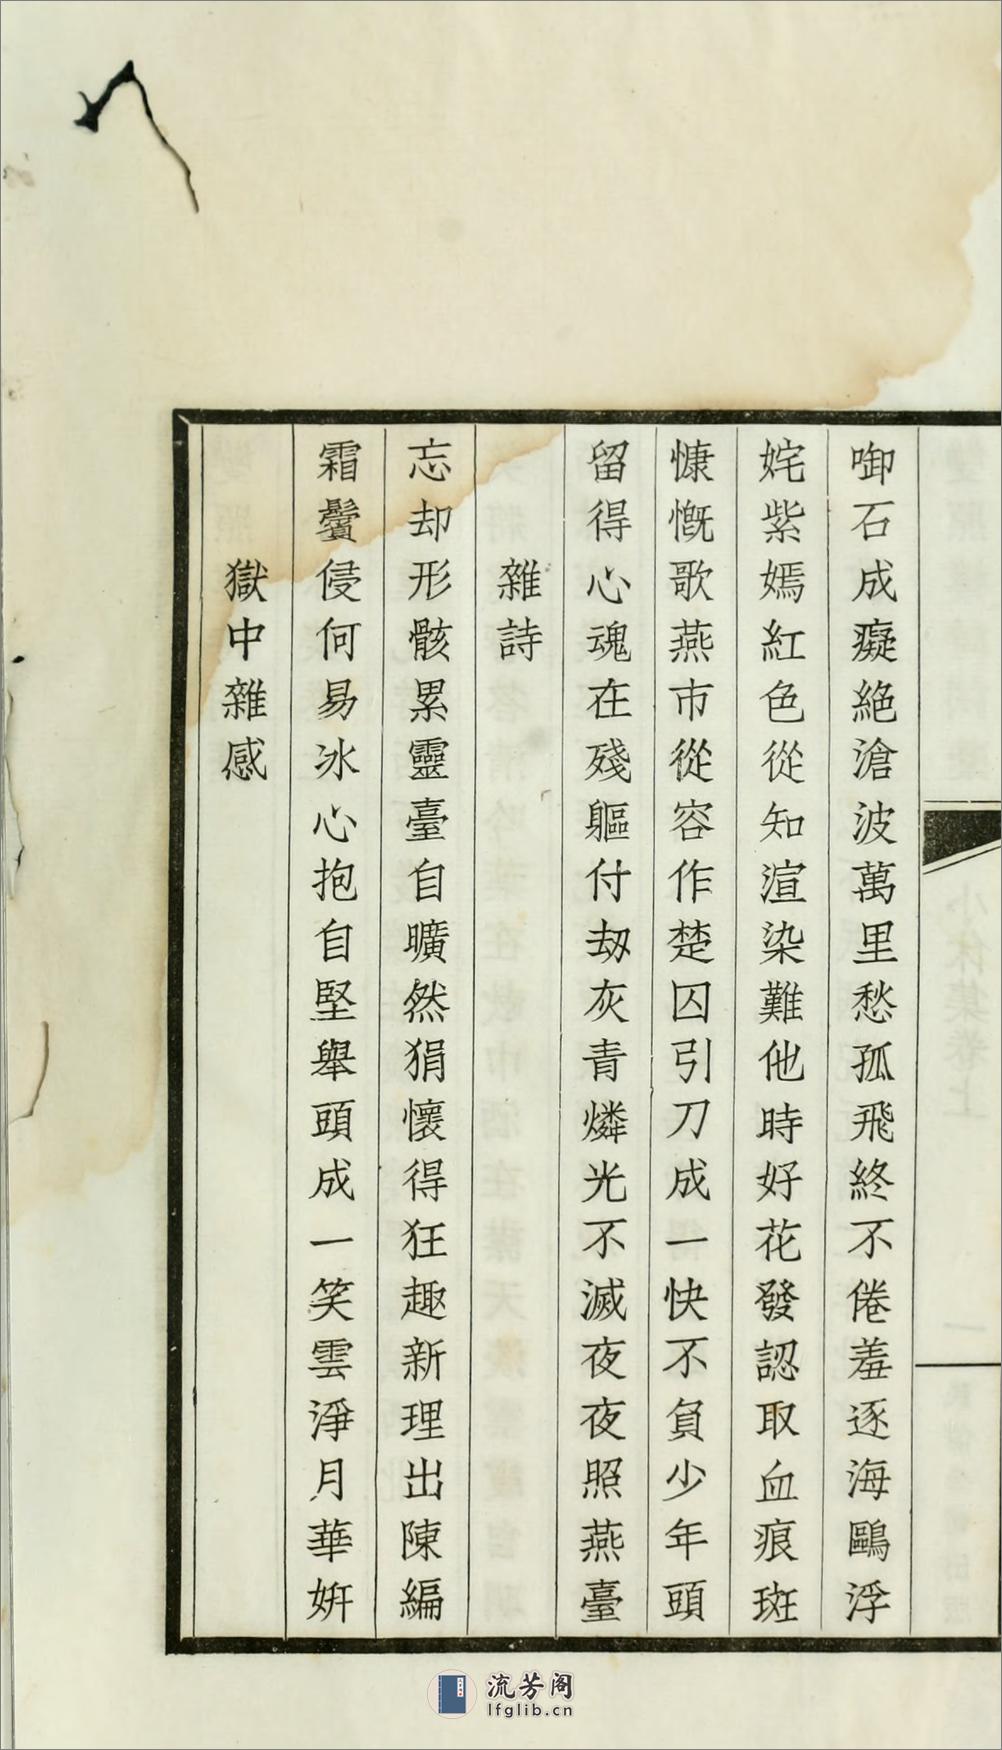 啣石成癡絕滄波萬里愁孤飛終不倦羞逐海鷗浮
姹紫嫣紅色從知渲染難他時好花發認取血痕斑
慷慨歌燕市從容作楚囚引刀成一快不負少年頭
留得心魂在殘軀付劫灰青燐光不滅夜夜照燕臺
雜詩
忘却形骸累靈臺自曠然狷懷得狂趣新理出陳編
霜鬢侵何易冰心抱自堅舉頭成一笑雲淨月華姸
獄中雜感
小休集卷上
一
流芳阁
lfglib.cn